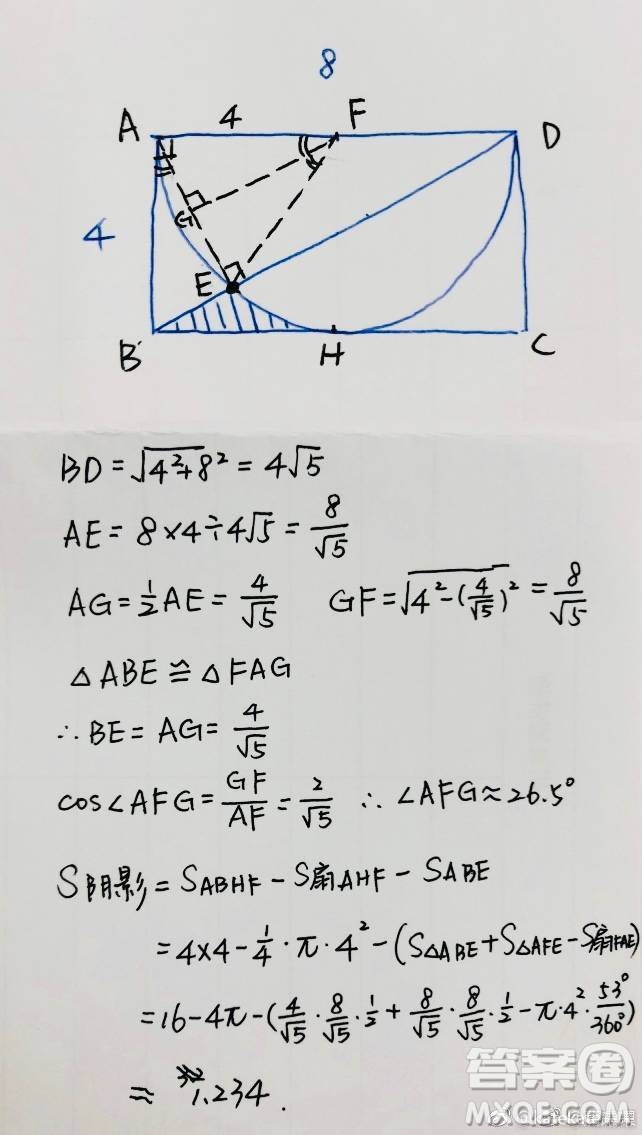 8
A 4 F D
4
G
E
B H C
BD=√4²+8² = 4√5
AE= 8×4÷4√5 = 8/√5
AG=½AE= 4/√5 GF=√4²-(4/√5)² = 8/√5
△ABE≌△FAG
∴BE= AG= 4/√5
cos∠AFG= GF/AF = 2/√5 ∴ ∠AFG≈26.5°
S阴影= SABHF - S扇AHF - SABE
=4×4-¼·π·4²-(S△ABE+S△AFE-S扇FAE)
=16-4π-(4/√5·8/√5·½+8/√5·8/√5·½-π·4²·53°/360°)
≈ 1.234.
答案圈
MXQE.COM